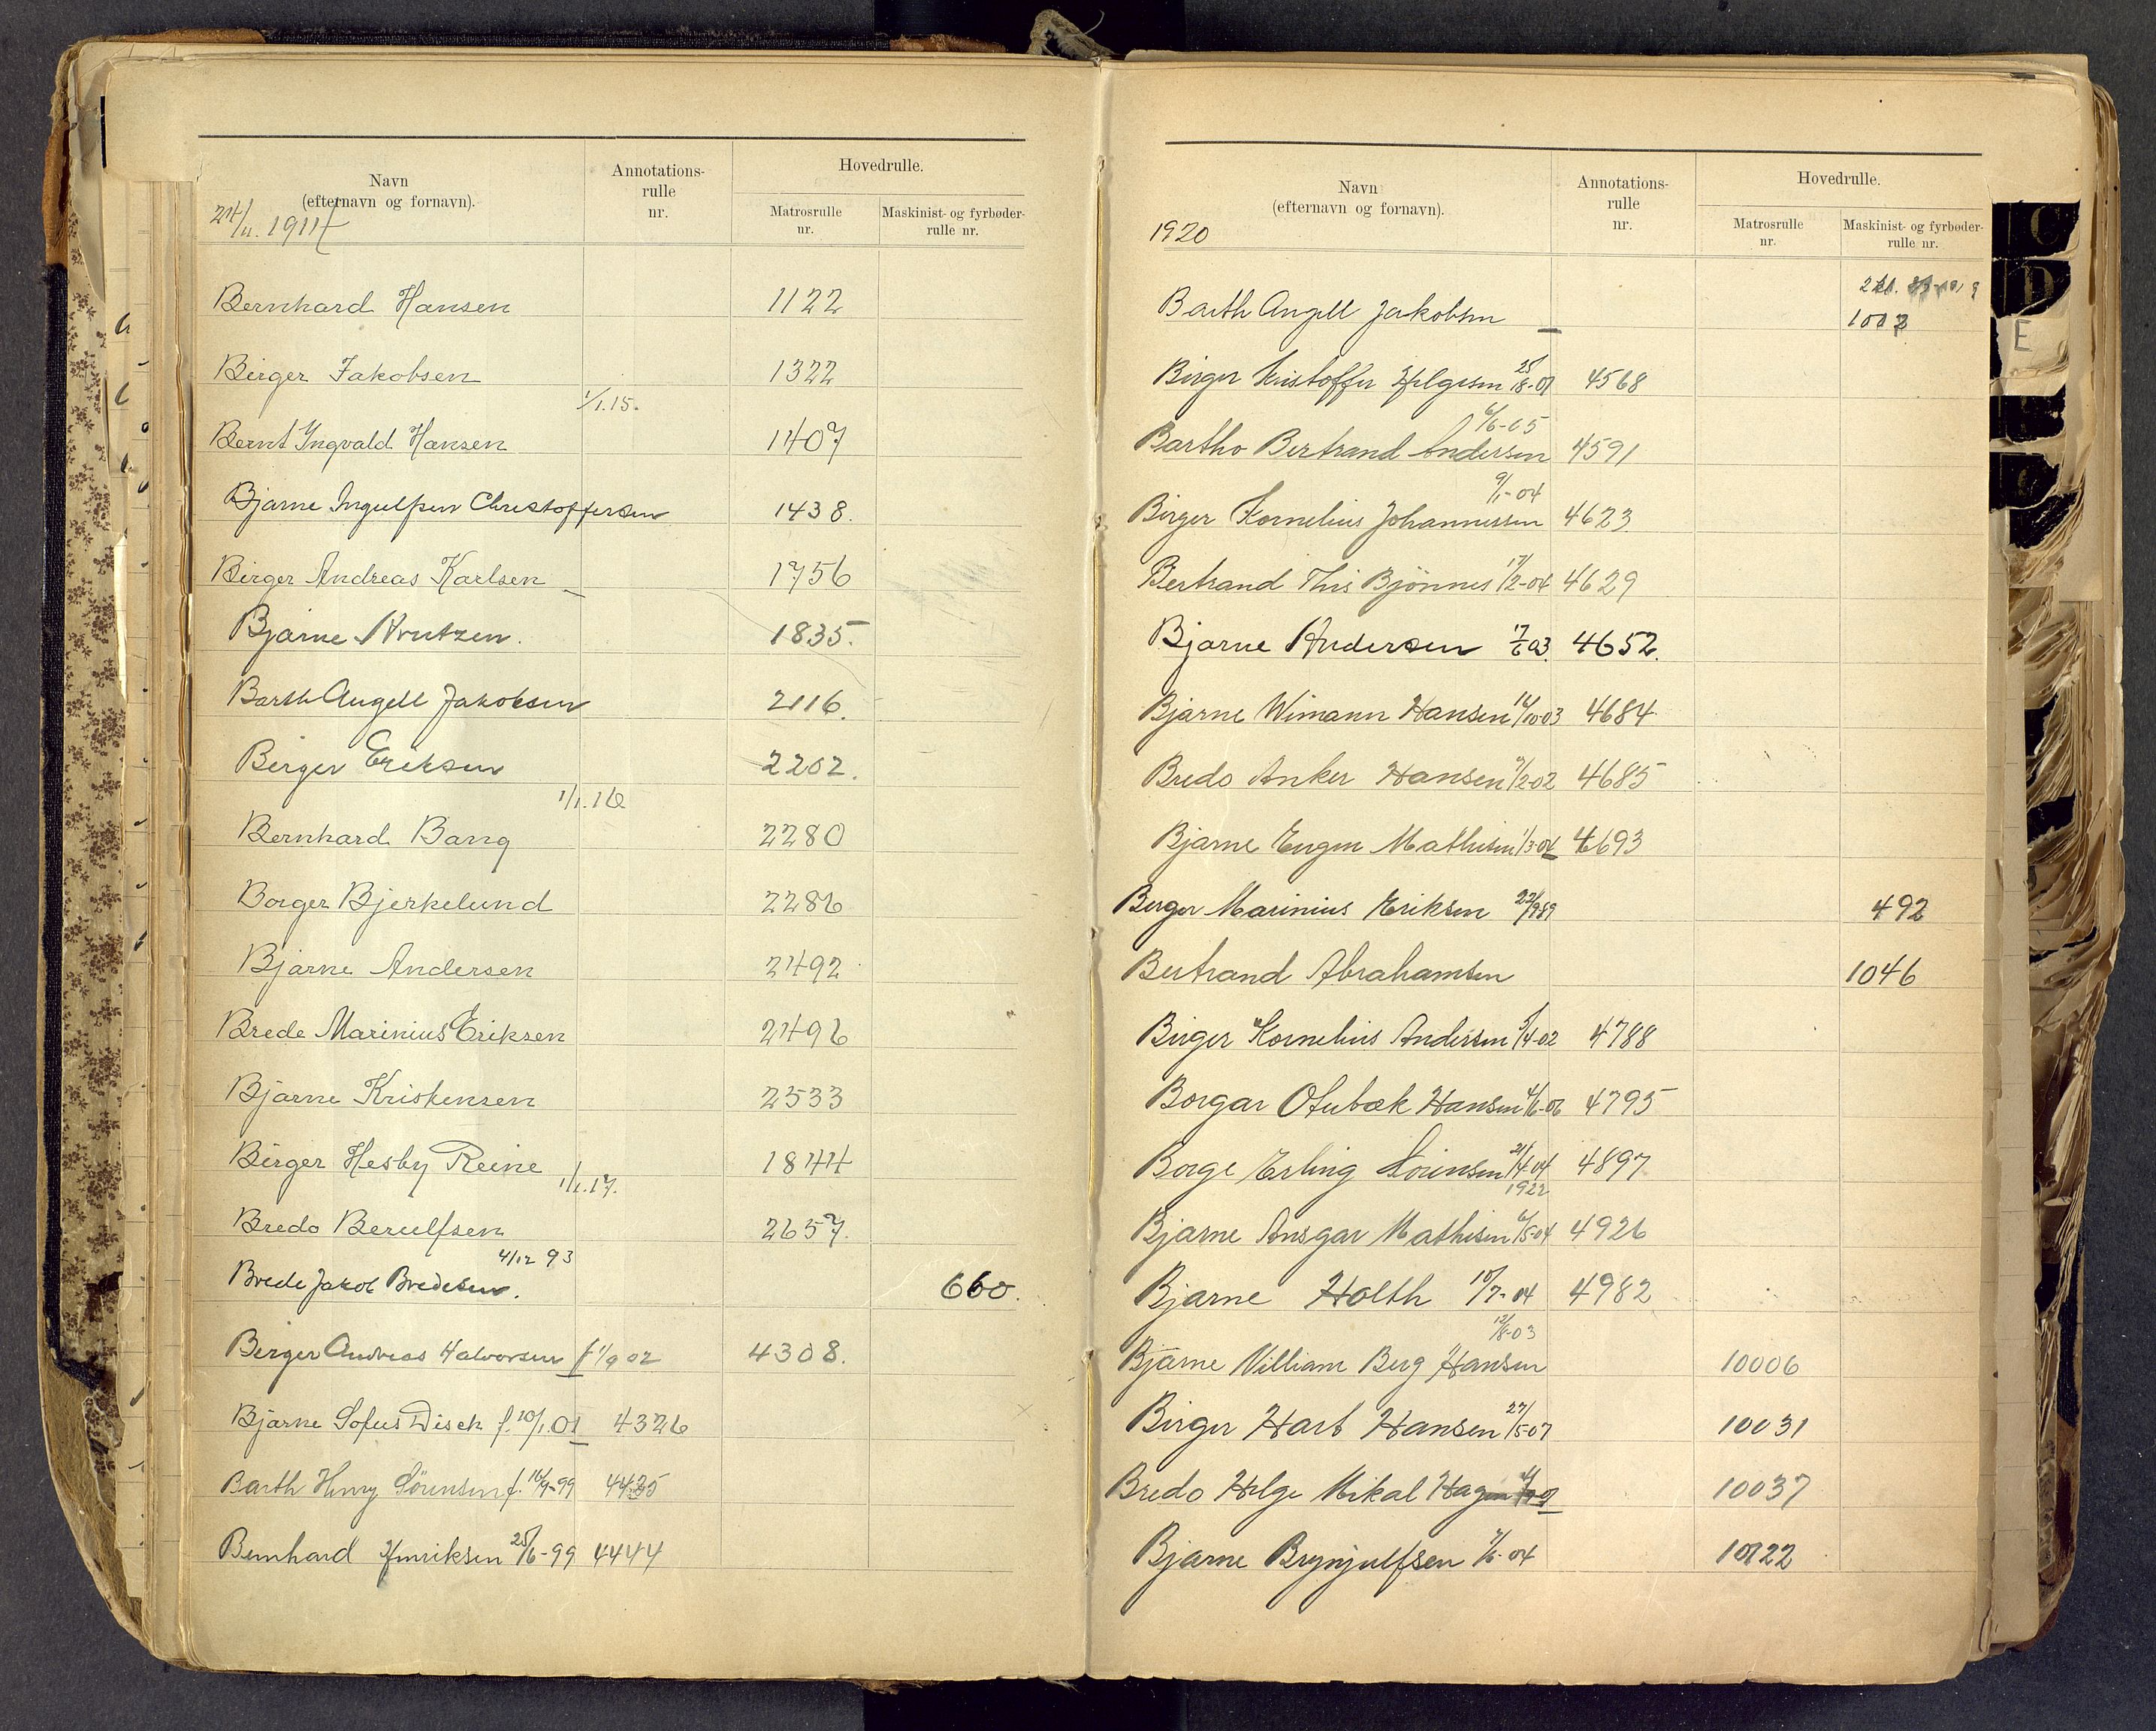 Navn
(efternavn og fornavn).
Annotations-
rulle
nr.
Hovedrulle.
Matrosrulle
nr.
Maskinist- og fyrbøder-
rulle nr.
24/11. 1914
Bernhard Hansen 1122
Birger Jakobsen 1322
1/1.15.
Bernt Yngvald Hansen 1407
Bjarne Ingulfsen Christoffersen 1438.
Birger Andreas Karlsen 1756
Bjarne Knutzen. 1835.
Barth Angell Jakobsen 2116.
Birger Eriksen 2202.
1/1.16
Bernhard Bang 2280
Borger Bjerkelund 2286
Bjarne Andersen 2492
Brede Marinius Eriksen 2496
Bjarne Kristensen 2533
Birger Hesby Reine 1844
1/1.17.
Bredo Berulfsen 2657.
4/12 93
Brede Jakob Bredesen. 660.
Birger Andreas Halvorsen f 1/9 02 4308.
Bjarne Sofus Disch f. 10/1.01 4326
Barth Henry Sørensen f. 16/9-99 4435
Bernhard Henriksen 25/6-99 4444
Navn
(efternavn og fornavn).
Annotations-
rulle
nr.
Hovedrulle.
Matrosrulle
nr.
Maskinist- og fyrbøder-
rulle nr.
1920
Barth Angell Jakobsen 1002
Birger Kristoffer Helgesen 25/8-01 4568
6/6-05
Bartho Bertrand Andersen 4591
9/1-04
Birger Kornelius Johannessen 4623
Bertrand This Bjønnes 17/2-04 4629
Bjarne Andersen 17/6 03. 4652.
Bjarne Wimann Hansen 14/10 03 4684
Bredo Anker Hansen 7/2-02 4685
Bjarne Eugen Mathisen 1/3-04 4693
Berger Marinius Eriksen 22/9 89 492
Bertrand Abrahamsen 1046
Birger Kornelius Andersen 5/4-02 4788
Borgar Ofubæk Hansen 4/6-06 4795
Borge Erling Sørensen 21/4-04 4897
1922
Bjarne Ansgar Mathisen 6/5-04 4926
Bjarne Holth 10/7-04 4982
12/8-03
Bjarne Villiam Berg Hansen 10006
Birger Harb Hansen 27/5-07 10031
Bredo Helge Mikal Hagen 10037
Bjarne Brynjulfsen 7/6-04 10122
C
D
E